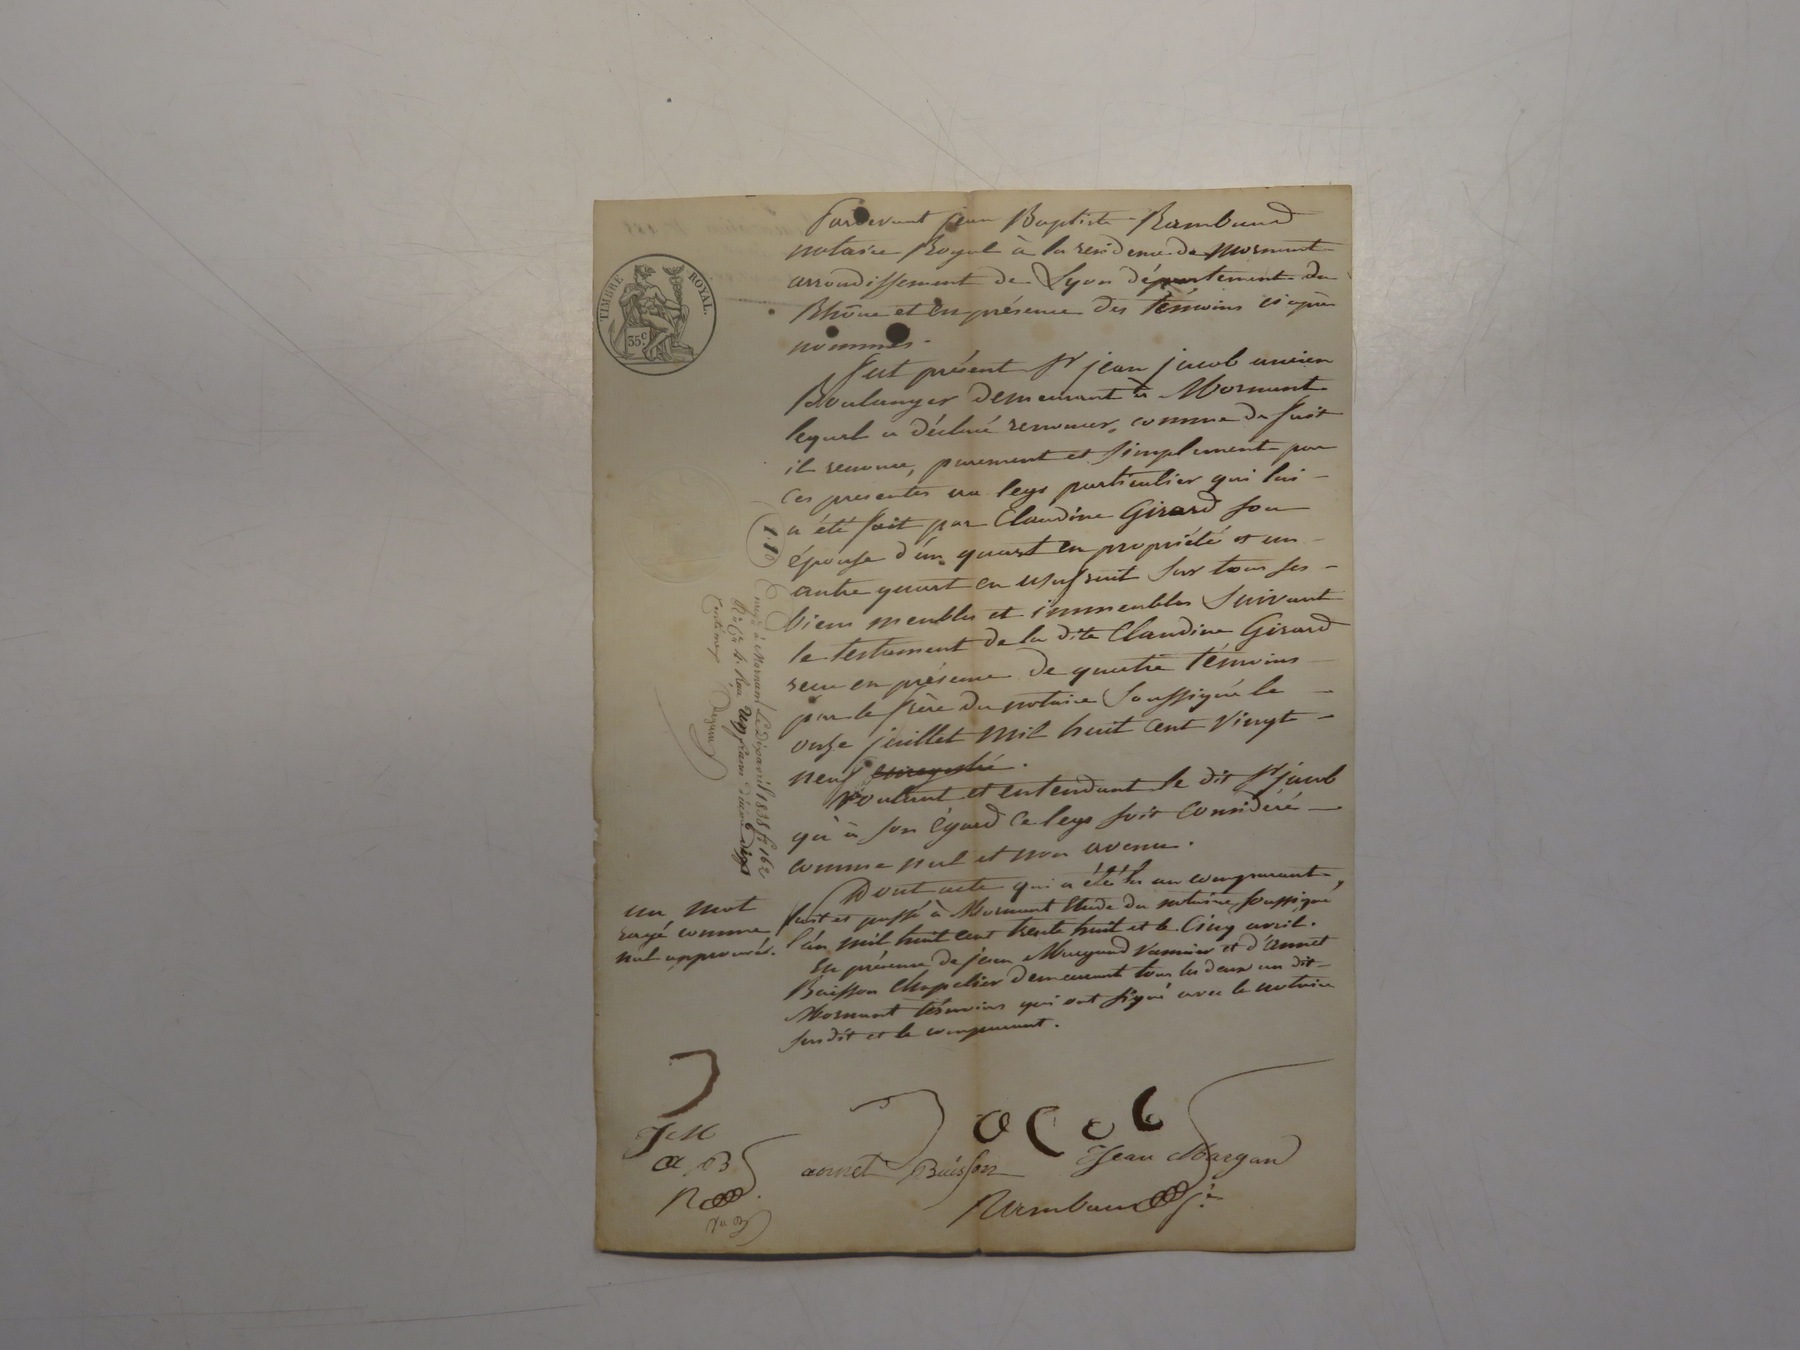 TIMBRE ROYAL.
35 c
Pardevant jean Baptiste Rambaud
notaire Royal à la residence de Mornant
arrondissement de Lyon département du
Rhône et en présence des témoins ci après
nommés.
Fut présent Sr jean jacob ancien
Boulanger demeurant à Mornant
lequel a déclaré renoncer, comme de fait
il renonce, purement et simplement par
ces presentes au legs particulier qui lui
a été fait par Claudine Girard son
épouse d'un quart en propriété et un
autre quart en usufruit sur tous ses
biens meubles et immeubles suivant
le testament de la dite Claudine Girard
recu en présence de quatre témoins
par le frère du notaire soussigné le
onze juillet mil huit cent vingt
neuf enregistré.
Voulant et entendant le dit Sr jacob
qu'à son égard ce legs soit considéré
comme nul et non avenu.
Dont acte qui a été lu au comparant,
fait et passé à Mornant Etude du notaire soussigné
l'an mil huit cent trente huit et le Cinq avril.
En présence de jean Margand vannier et d'annet
Buisson Chapelier demeurant tous les deux au dit
Mornant témoins qui ont signé avec le notaire
susdit et le comparant.
un mot
rayé comme
nul approuvé.
à Mornant Le Dix avril 1838 f° 162
Centimes
110
J
J M
a B
R
jacob
annet Buisson
Jean Margand
Rambaud